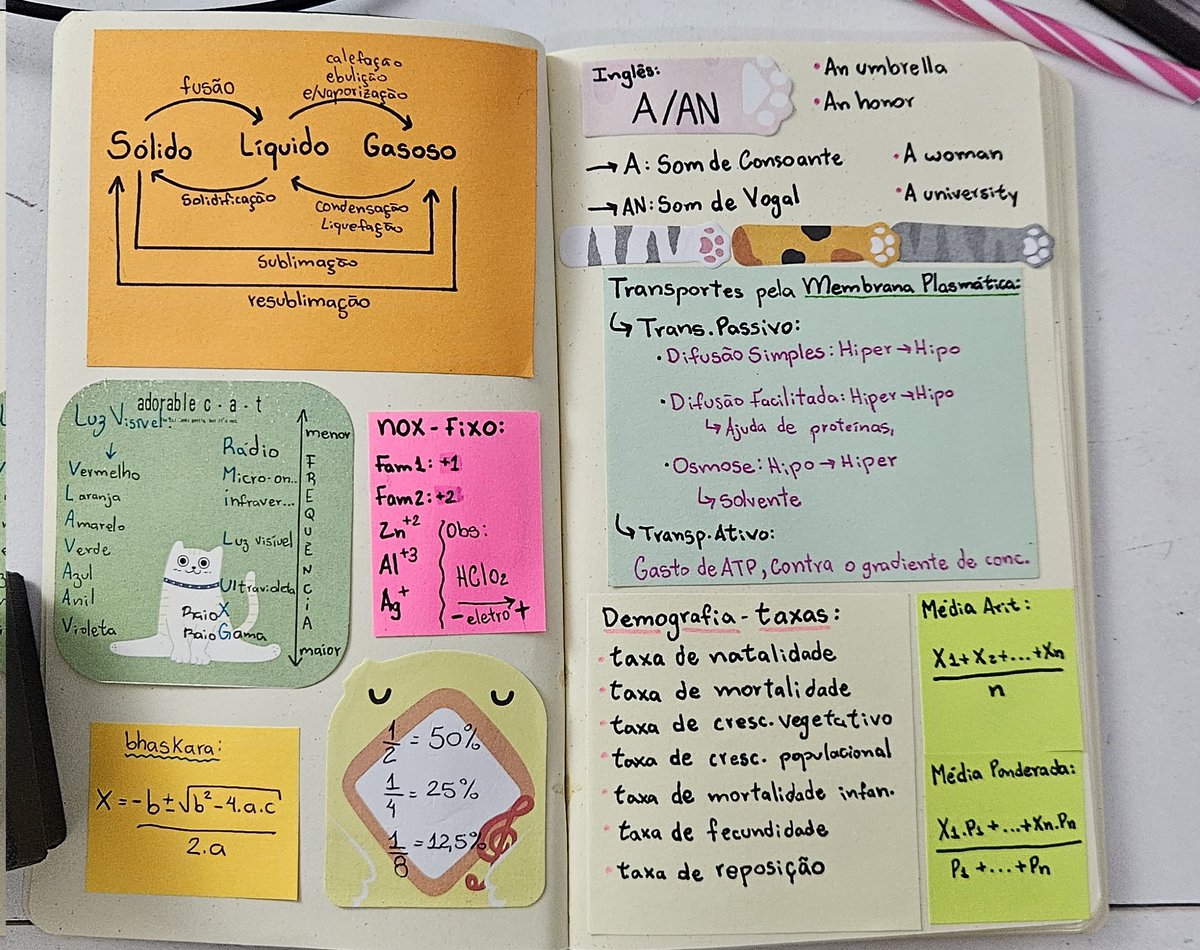 calefação
ebulição
e/vaporização
fusão
Sólido Líquido Gasoso
Solidificação
Condensação
Liquefação
Sublimação
resublimação
adorable c - a - t
Luz Visível:
Vermelho
Laranja
Amarelo
Verde
Azul
Anil
Violeta
Rádio
Micro-on...
infraver...
Luz visível
Ultravioleta
Raio X
Raio Gama
menor
FREQUÊNCIA
maior
nox-fixo:
Fam1: +1
Fam2: +2
Zn+2
Al+3
Ag+
Obs:
HClO2
-eletro+
bhaskara:
X = -b ± √b²-4.a.c
2.a
1/2 = 50%
1/4 = 25%
1/8 = 12,5%
Inglês:
A/AN
• An umbrella
• An honor
→ A: Som de Consoante
→ AN: Som de Vogal
• A woman
• A university
Transportes pela Membrana Plasmática:
↳ Trans. Passivo:
• Difusão Simples: Hiper → Hipo
• Difusão Facilitada: Hiper → Hipo
↳ Ajuda de proteínas,
• Osmose: Hipo → Hiper
↳ Solvente
↳ Transp. Ativo:
Gasto de ATP, Contra o gradiente de conc.
Demografia - taxas:
• taxa de natalidade
• taxa de mortalidade
• taxa de cresc. vegetativo
• taxa de cresc. populacional
• taxa de mortalidade infan.
• taxa de fecundidade
• taxa de reposição
Média Arit:
X1+X2+...+Xn
n
Média Ponderada:
X1.P1+...+Xn.Pn
P1+...+Pn